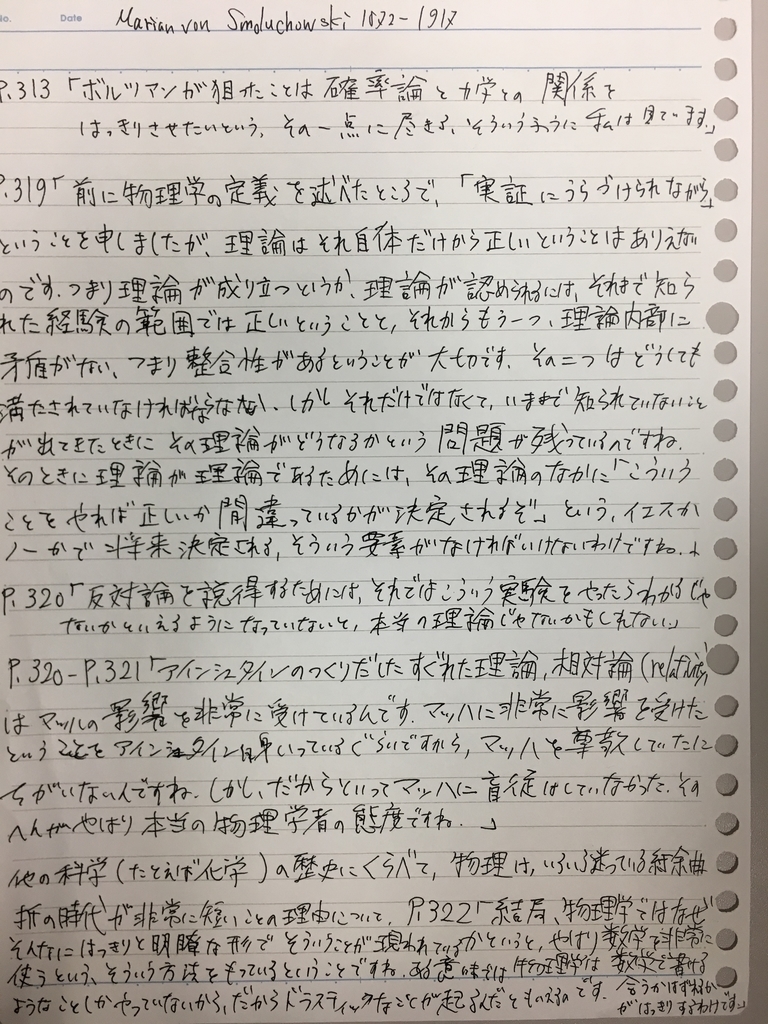 No. Date Marian von Smoluchowski 1872-1917
P.313「ボルツマンが狙ったことは 確率論と力学との 関係を
はっきりさせたいという、その一点に尽きる、そういうふうに私は見ています。」
P.319「前に物理学の定義を述べたところで、「実証にうらづけられながら」
ということを申しましたが、理論はそれ自体だけから正しいということはありえない
のです。つまり理論が成り立つというか、理論が認められるには、それまで知ら
れた経験の範囲では正しいということと、それからもう一つ、理論内部に
矛盾がない、つまり整合性があるということが大切です。その二つはどうしても
満たされていなければならない。しかしそれだけではなくて、いままで知られていないこと
が出てきたときにその理論がどうなるかという問題が残っているのですね。
そのときに理論が理論であるためには、その理論のなかに「こういう
ことをやれば正しいか間違っているかが決定されるぞ」という、イエスか
ノーかで将来決定される、そういう要素がなければいけないわけですね。」
P.320「反対論を説得するためには、それではこういう実験をやったらわかるじゃ
ないかといえるようになっていないと、本当の理論じゃないかもしれない。」
P.320-P.321「アインシュタインのつくりだしたすぐれた理論、相対論(relativity)
はマッハの影響を非常に受けているんです。マッハに非常に影響を受けた
ということをアインシュタイン自身いっているぐらいですから、マッハを尊敬していたに
ちがいないんですね。しかし、だからといってマッハに盲従はしていなかった。その
へんがやはり本当の物理学者の態度ですね。」
他の科学(たとえば化学)の歴史にくらべて、物理は、いろいろ迷っている紆余曲
折の時代が非常に短いことの理由について、P.322「結局、物理学ではなぜ
そんなにはっきりと明瞭な形でそういうことが現われているかというと、やはり数学を非常に
使うという、そういう方法をもっているということですね。ある意味では物理学は数学で書ける
ようなことしかやっていないから、だからドラスティックなことが起るんだともいえるのです。合うかはずれるか
がはっきりするわけです。」